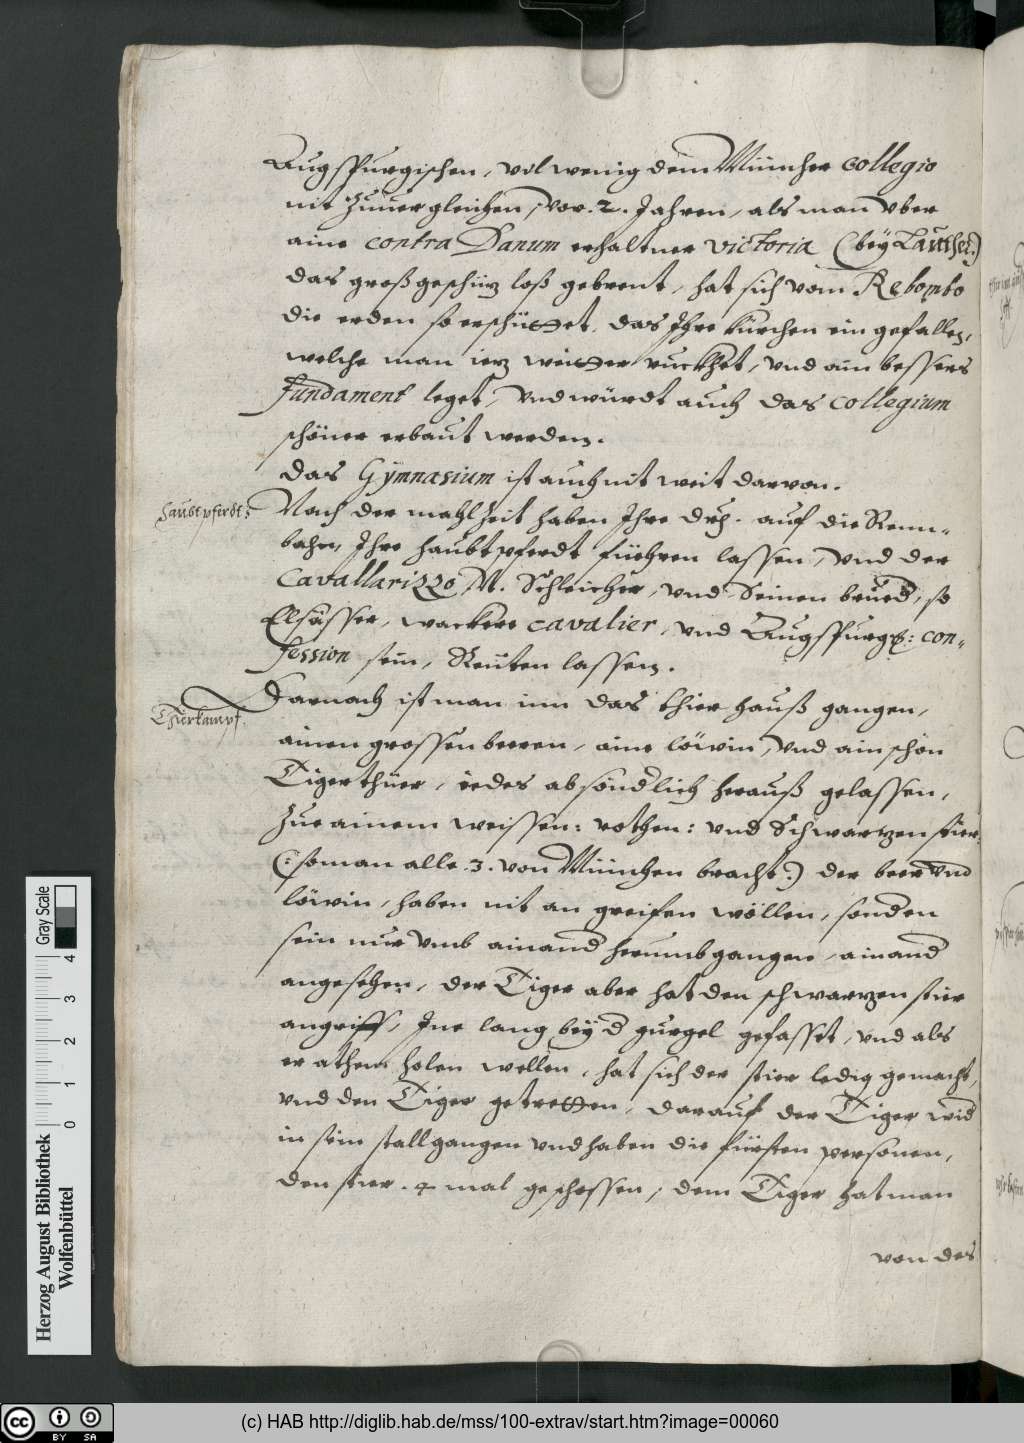 Augspurgischen, vil wenig dem Müncher collegio
nit zuuergleichen, Vor .2. Jahren, als man vber
aine contra Danum erhaltner victoria (bey Lauther)
das groß geschüz loß gebrent, hat sich vom Rebombo
die erden so erschüttet, das Ihre kürchen ein gefallen,
welche man iez weitter ruckhet, vnd ain bessers
fundament leget, Vnd würdt auch das collegium
schöner erbaut werden.
Das Gÿmnasium ist auch nit weit darvon.
Haubtpferdt:
Nach der mahlzeit haben Ihre Drh. auf die Renn-
bahn, Ihre haubtpferdt füehren lassen, Vnd der
Cavallarizzo M. Schleicher, vnd Seinen brued, so
Elsässer, wackere cavalier, vnd Augspurg: con-
fession sein, Reuten lassen.
Thierkampf.
Darnach ist man inn das thier hauß gangen,
ainen grossen beeren, aine löwin, Vnd ain schön
Tigerthier, iedes absondlich herauß gelassen,
Zue ainem weissen: rothen: vnd Schwarzen stier
(: so man alle .3. von München bracht:) der beer Vnd
löwin, haben nit an greifen wöllen, sonden
sein nur Vmb ainand herumb gangen, ainand
angesehen, der Tiger aber hat den schwarzen stier
angriff, Ine lang bey d gurgel gefasset, vnd als
er athem holen wollen, hat sich der stier ledig gemacht,
vnd den Tiger getretten, darauf der Tiger wid
in sein stall gangen vnd haben die fürsten personen,
den stier .4 mal geschossen, dem Tiger hat man
von des
Herzog August Bibliothek
Wolfenbüttel
0 1 2 3 4
Gray Scale
CC BY SA
(c) HAB http://diglib.hab.de/mss/100-extrav/start.htm?image=00060